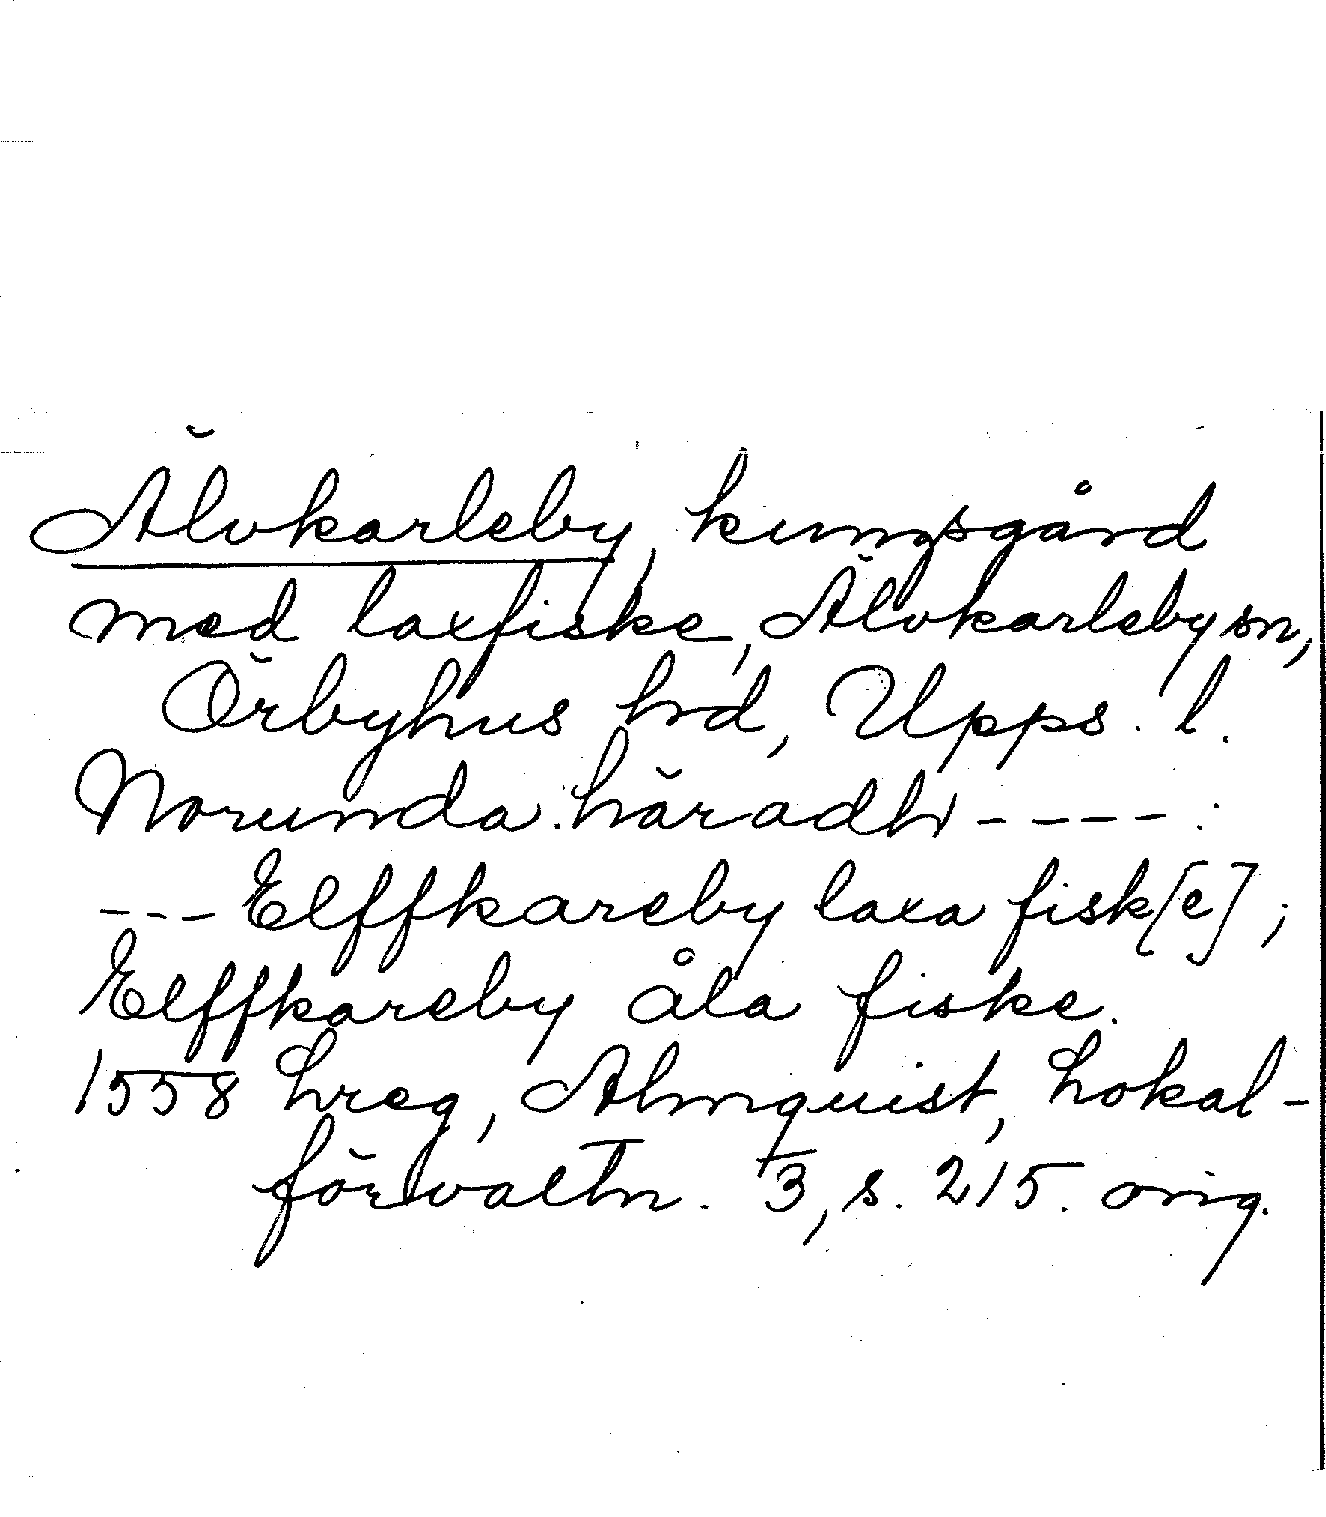 Älvkarleby, kungsgård
med laxfiske, Älvkarleby sn,
Örbyhus hd, Upps. l.
Norunda häradh ---- :
--- Elffkareby laxa fisk[e] ;
Elffkareby åla fiske.
1558 hreg, Almquist, Lokal-
förvaltn. 3, s. 215. orig.